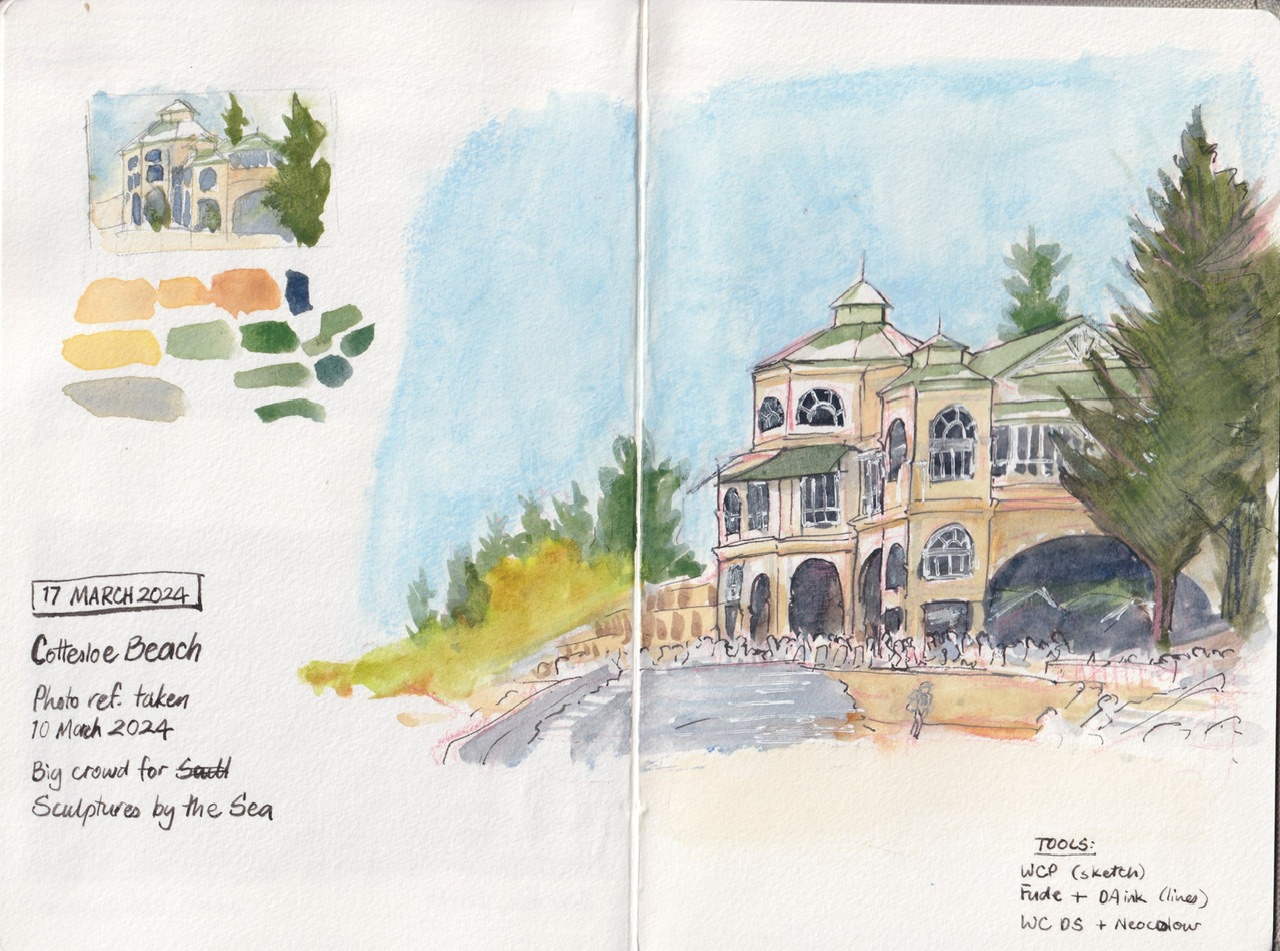 17 MARCH 2024
Cottesloe Beach
Photo ref. taken
10 March 2024
Big crowd for
Sculptures by the Sea
TOOLS:
WCP (sketch)
Fude + DA ink (lines)
WC DS + Neocolour